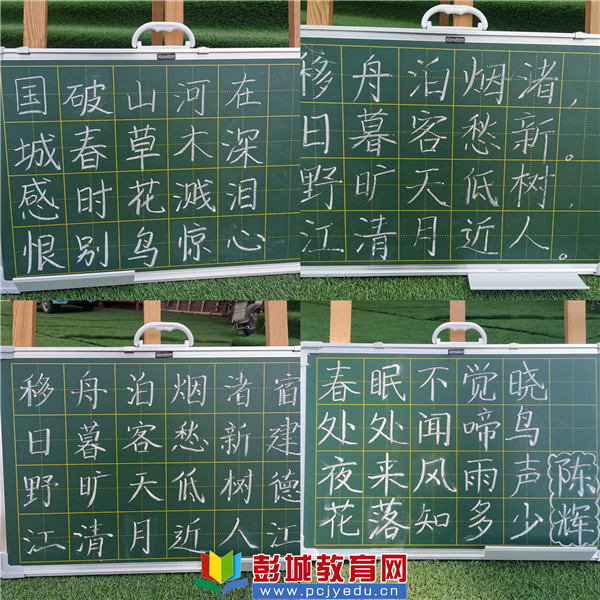 国破山河在
城春草木深
感时花溅泪
恨别鸟惊心
移舟泊烟渚,
日暮客愁新。
野旷天低树,
江清月近人。
移舟泊烟渚宿
日暮客愁新建
野旷天低树德
江清月近人江
春眠不觉晓
处处闻啼鸟
夜来风雨声
花落知多少
陈辉
彭城教育网
www.pcjyedu.cn